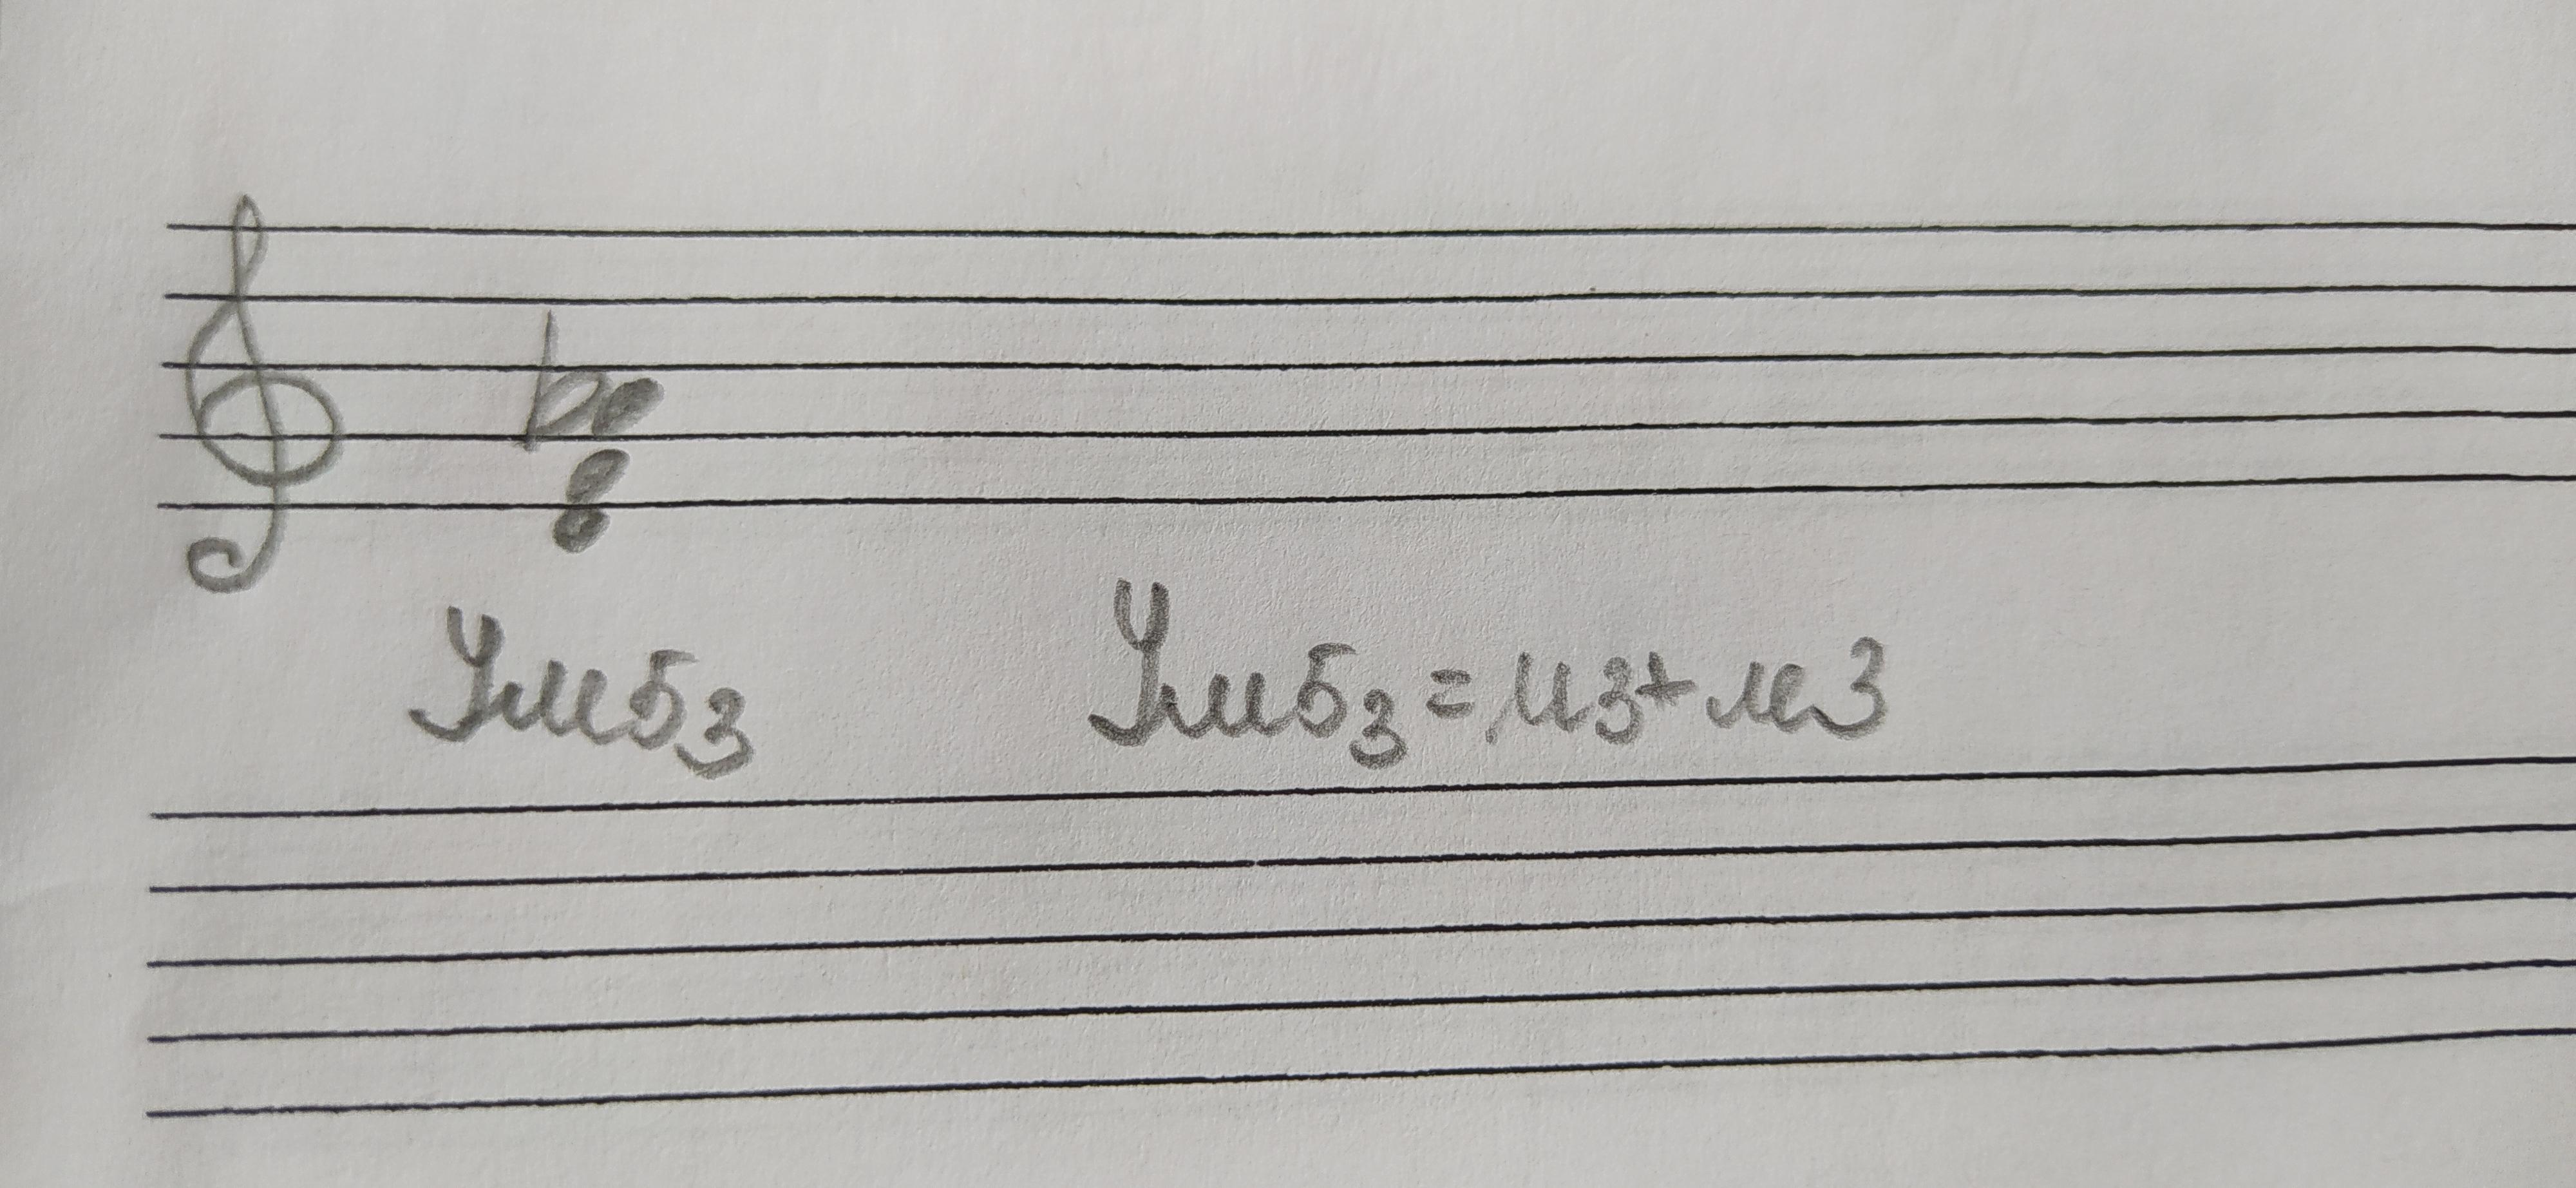 Ум5₃ Ум5₃=м3+м3